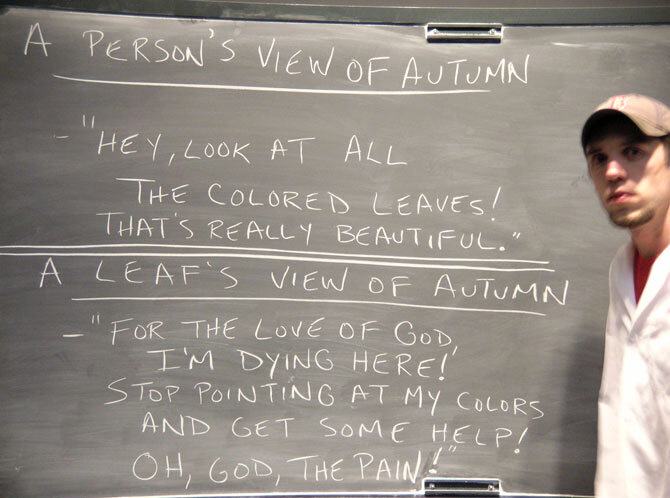 A PERSON'S VIEW OF AUTUMN
- "HEY, LOOK AT ALL
THE COLORED LEAVES!
THAT'S REALLY BEAUTIFUL."
A LEAF'S VIEW OF AUTUMN
- "FOR THE LOVE OF GOD,
I'M DYING HERE!
STOP POINTING AT MY COLORS
AND GET SOME HELP!
OH, GOD, THE PAIN!"